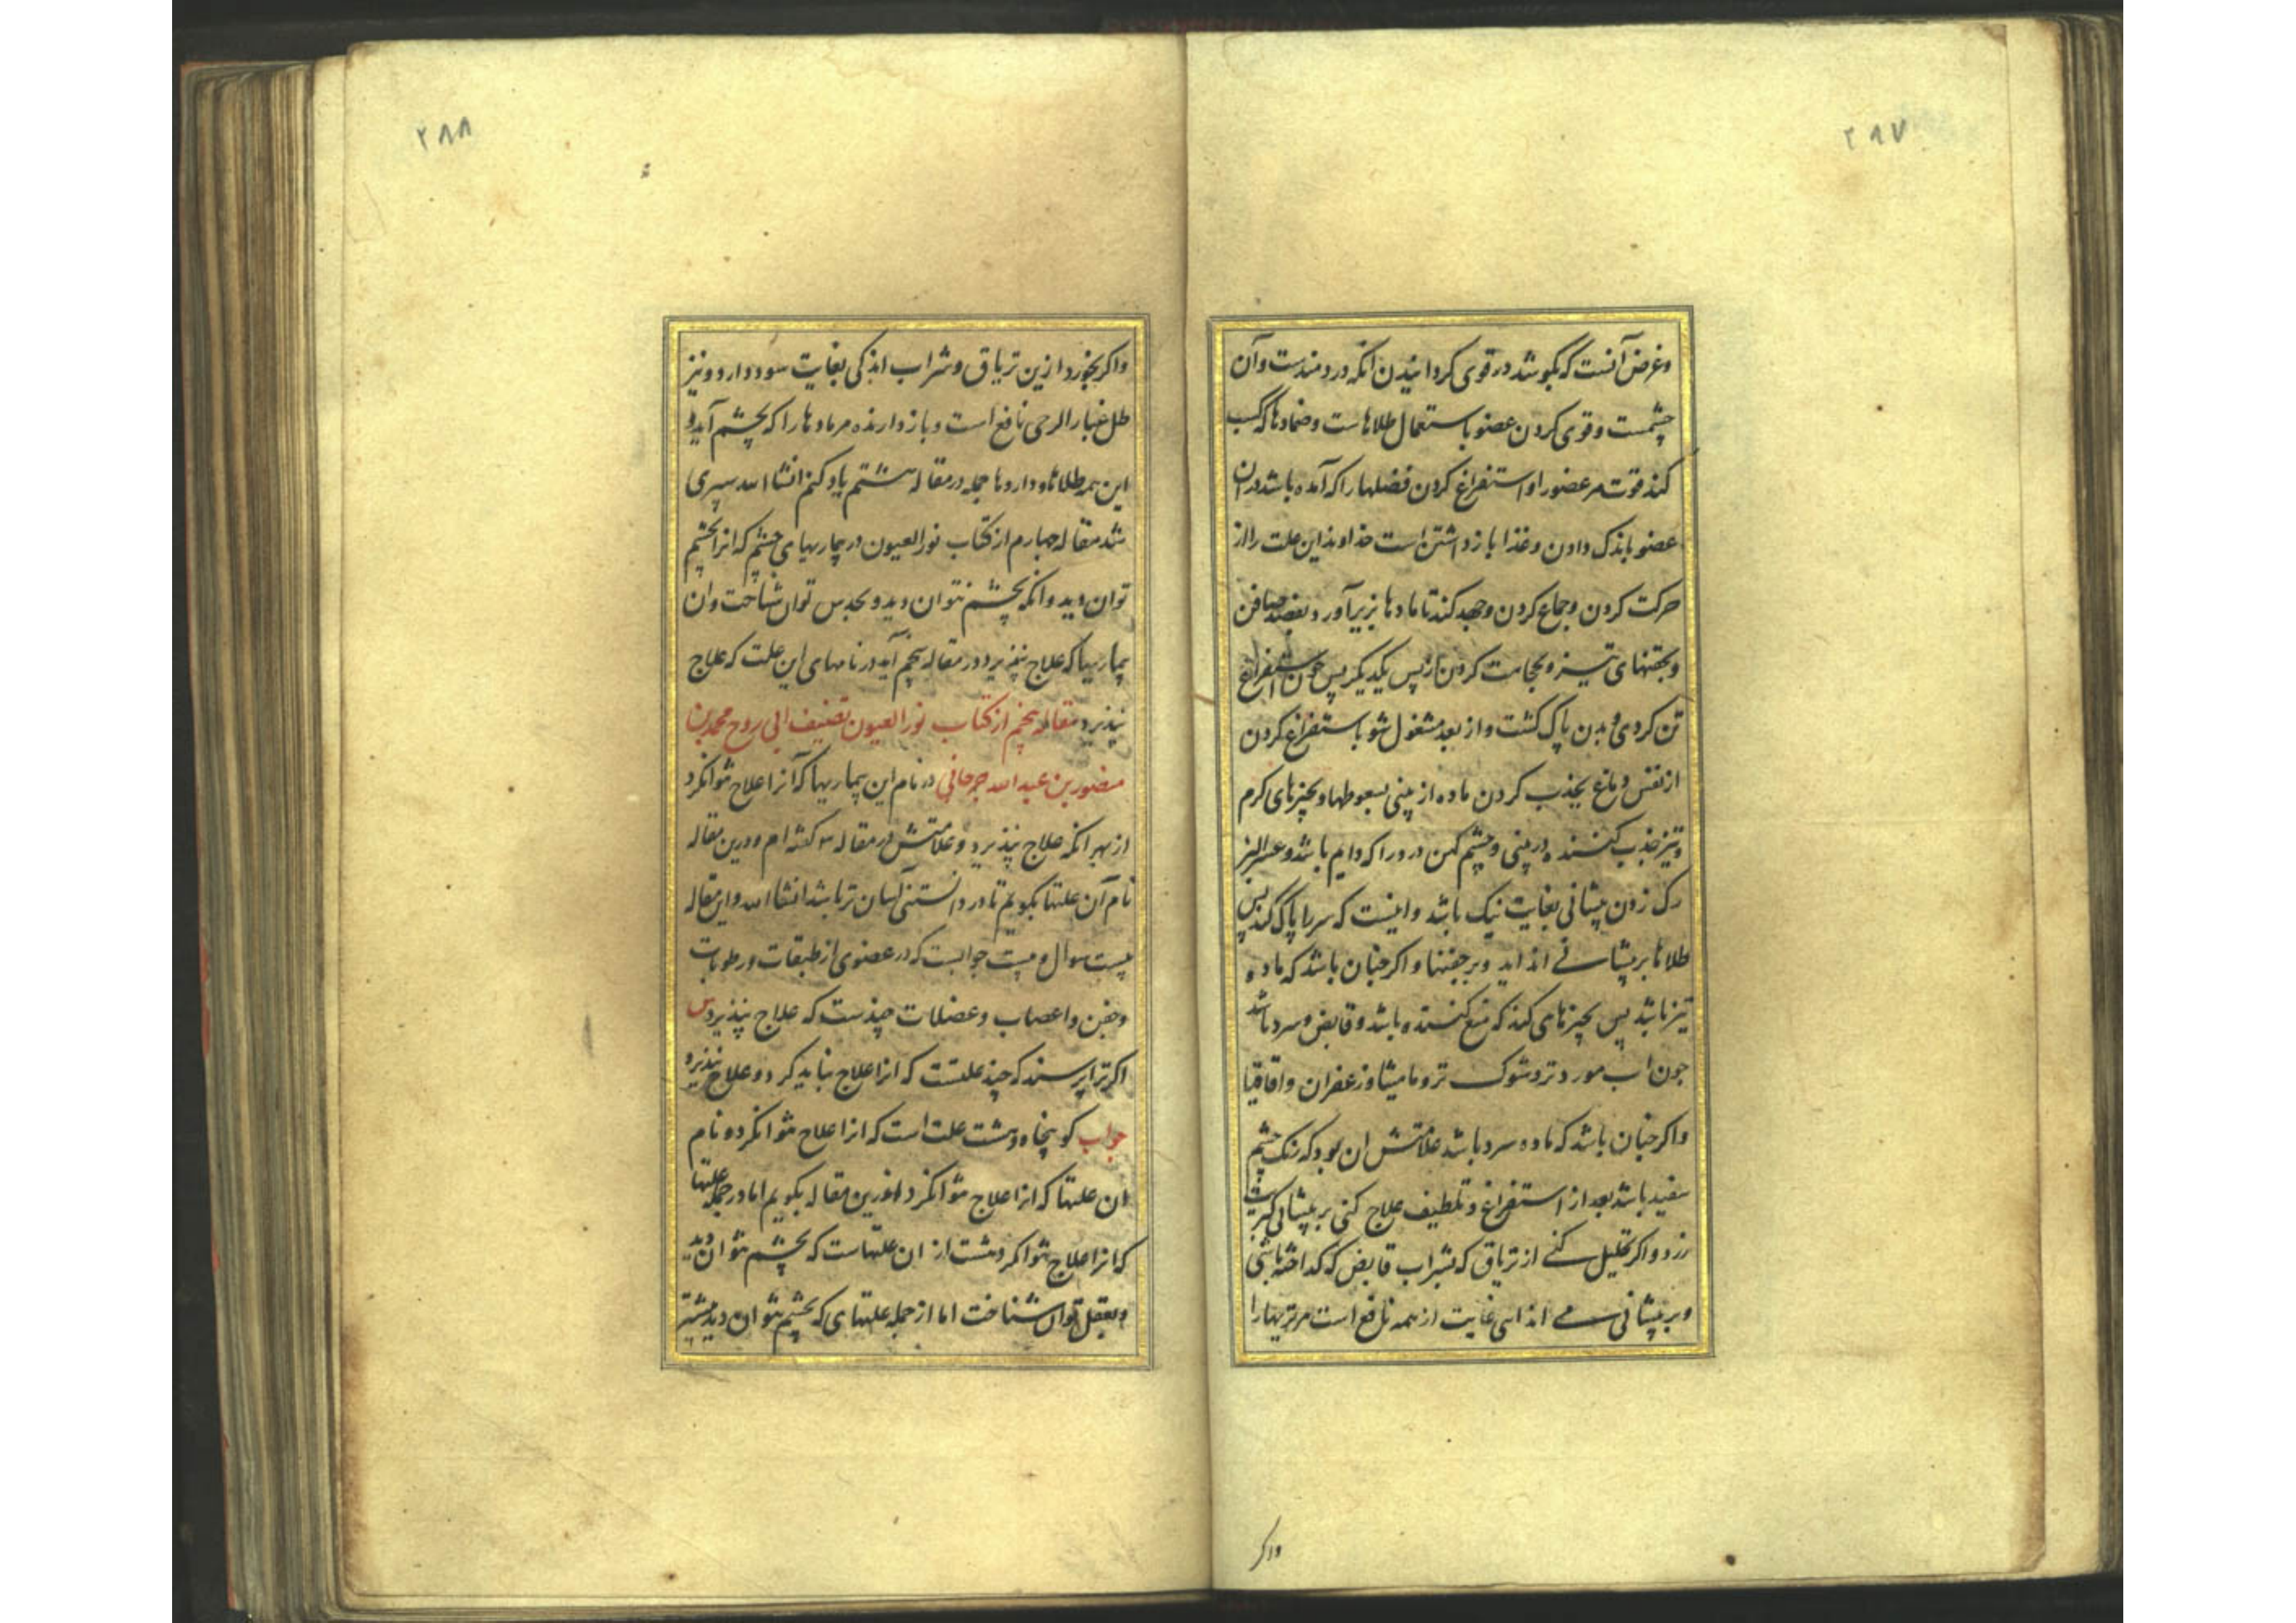 ۲۸۷
وغرض آنست که بکوشد در قوی کردانیدن انکه دردمندست وآن
چشمست وقوی کردن عضو باستعمال طلاهاست وضمادها که کسب
کند قوت مر عضو را واستفراغ کردن فضلها را که آمده باشد دران
عضو باندک دادن وغذا بازداشتن است خداوند این علت را از
حرکت کردن وجماع کردن وجهد کند تا مادها بزیر آورد بفصد صافن
وبحقنهای تیز وبحجامت کردن از پس یکدیکر پس چون استفراغ
تن کردی و بدن پاک کشت واز بعد مشغول شو باستفراغ کردن
از نفس دماغ بجذب کردن ماده از بینی بسعوطها وبچیزهای کرم
وتیز جذب کننده در بینی وچشم کهن درد را که دایم باشد وعسر البرء
رک زدن پیشانی بغایت نیک باشد واینست که سر را پاک کند پس
طلاها بر پیشانی انداید وبر جفنها واکر چنان باشد که ماده
تیز باشد پس بچیزهای کند که منع کننده باشد وقابض وسرد باشد
چون اب مورد تر وشوک تر ومامیثا وزعفران واقاقیا
واکر چنان باشد که ماده سرد باشد علامتش ان بود که رنک چشم
سفید باشد بعد از استفراغ وتلطیف علاج کنی بر پیشانی کبریت
زرد واکر تحلیل کنی از تریاق که بشراب قابض که کداخته باشی
وبر پیشانی می اندایی غایت از همه نافع است مر تریها را
واکر
۲۸۸
واکر بخورد ازین تریاق وشراب اندکی بغایت سود دارد ونیز
طل غبار الرحی نافع است وبازدارنده مر مادها را که بچشم آید و
این همه طلاها وداروها جمله در مقاله هشتم یاد کنم انشاالله سپری
شد مقاله چهارم از کتاب نور العیون در بیماریهای چشم که انرا بچشم
توان دید وانکه بچشم نتوان دید وبحدس توان شناخت وان
بیماریها که علاج نپذیرد در مقاله پنجم آید در نامهای این علت که علاج
نپذیرد مقاله پنجم از کتاب نور العیون تصنیف ابی روح محمد بن
منصور بن عبدالله جرجانی در نام این بیماریها که آنرا علاج نتوانکرد
از بهر انکه علاج نپذیرد وعلامتش در مقاله ۳ کفته ام ودرین مقاله
نام آن علتها بکویم تا در دانستن آسان تر باشد انشاالله واین مقاله
بیست سوال و بیست جوابست که در عضوی از طبقات ورطوبات
وجفن واعصاب وعضلات چندست که علاج نپذیرد س
اکر ترا پرسند که چند علتست که انرا علاج نباید کرد وعلاج نپذیرد
جواب کو پنجاه وهشت علت است که انرا علاج نتوانکرد ونام
ان علتها که انرا علاج نتوانکرد اندرین مقاله بکویم اما در جمله علتها
که انرا علاج نتوانکرد هشت از ان علتهاست که بچشم نتوان دید
وبعقل توان شناخت اما از جمله علتهای که بچشم نتوان دید بیشتر